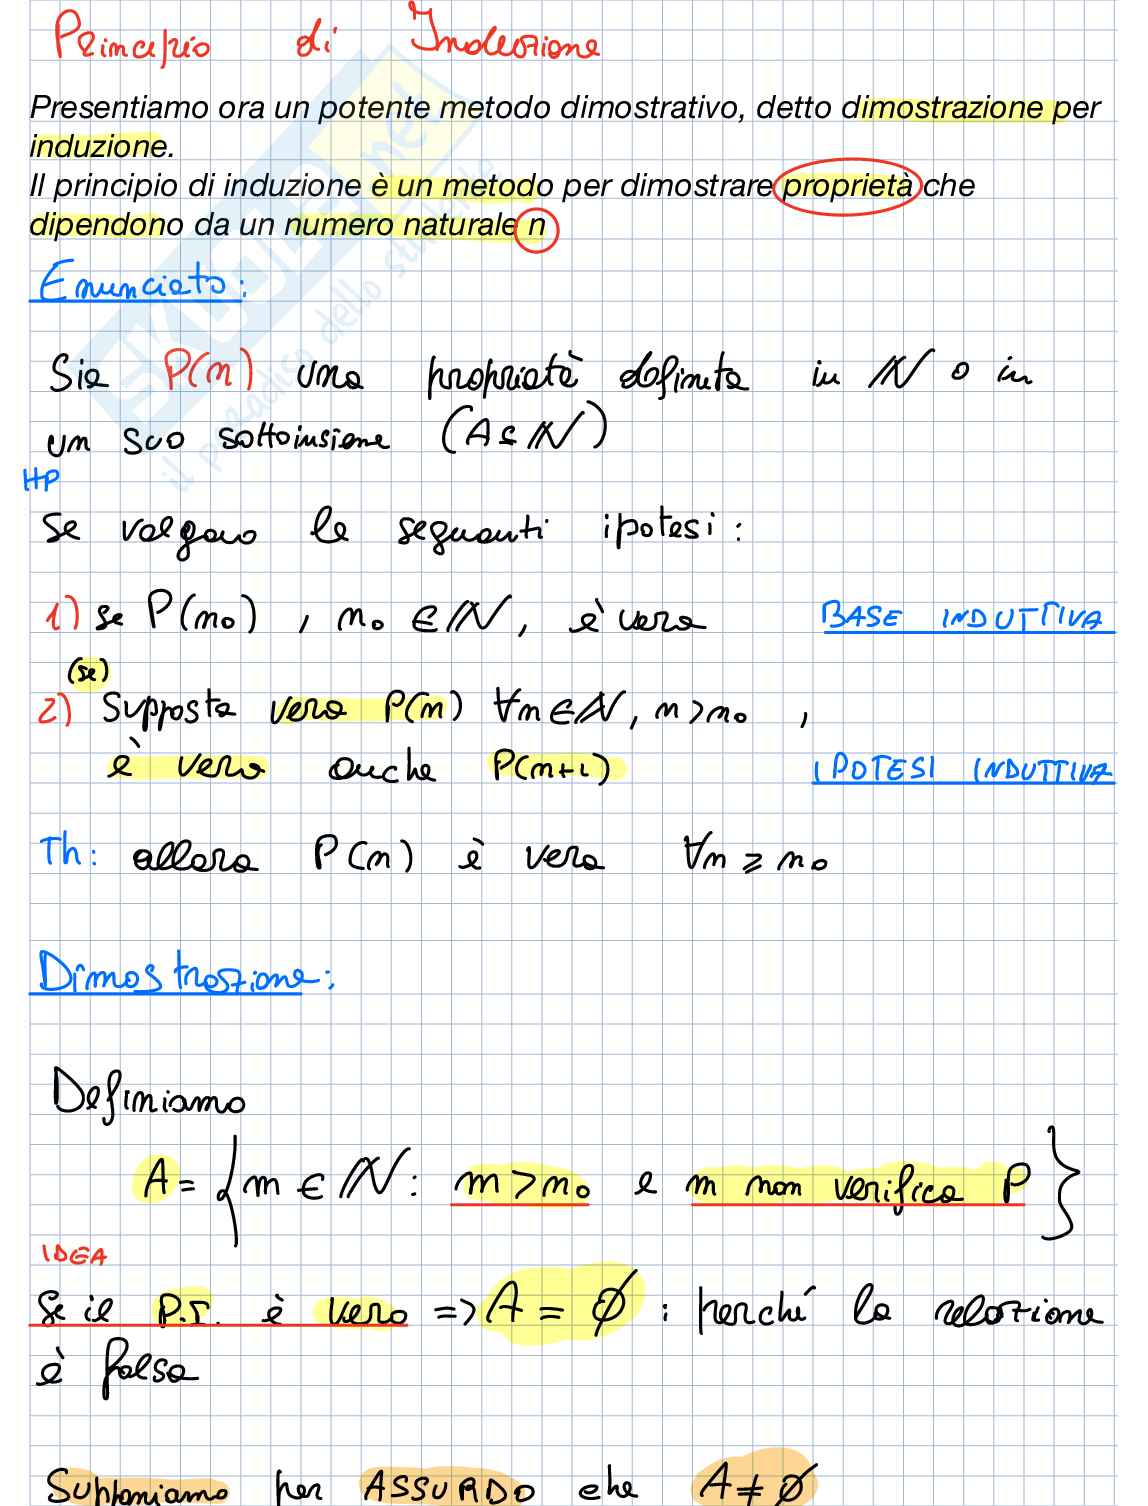 Principio di Induzione
Presentiamo ora un potente metodo dimostrativo, detto dimostrazione per
induzione.
Il principio di induzione è un metodo per dimostrare proprietà che
dipendono da un numero naturale n
Enunciato:
Sia P(n) una proprietà definita in ℕ o in
un suo sottoinsieme (A⊆ℕ)
HP
Se valgono le seguenti ipotesi:
1) se P(n₀), n₀ ∈ ℕ, è vera BASE INDUTTIVA
(se)
2) Supposta vera P(n) ∀n∈ℕ, n>n₀,
è vera anche P(n+1) IPOTESI INDUTTIVA
Th: allora P(n) è vera ∀n ⩾ n₀
Dimostrazione:
Definiamo
A = {m ∈ ℕ: m>n₀ e m non verifica P}
IDEA
Se il P.I. è vero => A = ∅ : perché la relazione
è falsa
Supponiamo per ASSURDO che A ≠ ∅
SKUOLA.net
il paradiso dello studente